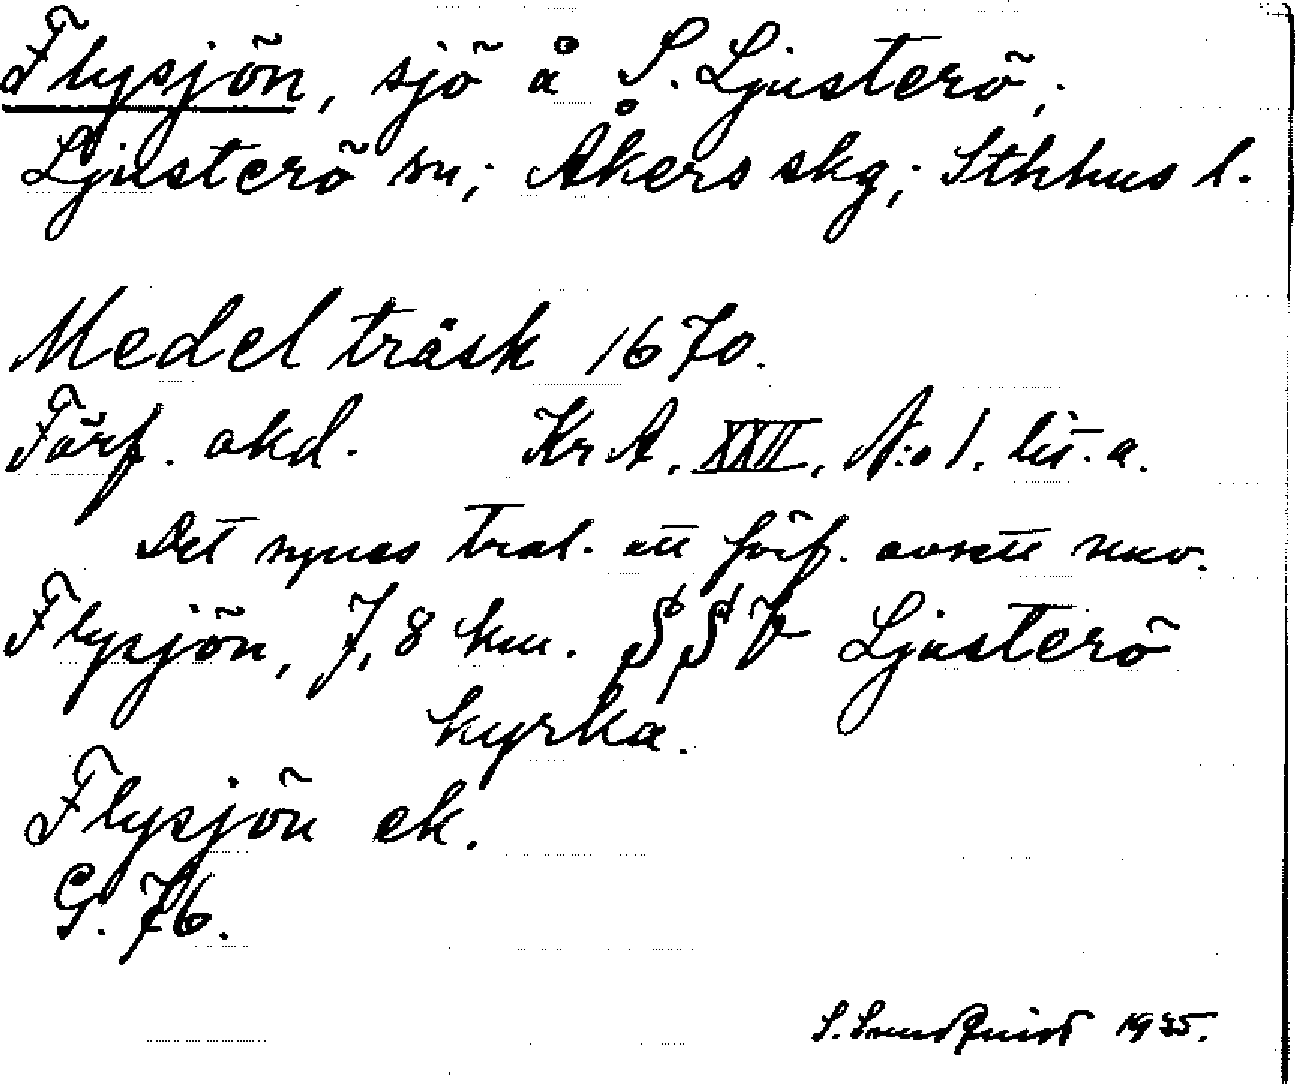 Flysjön, sjö å S. Ljusterö,
Ljusterö sn; Åkers skg; Sthhus l.
Medel träsk 1670.
Förf. okd. Kr A. XXII, N:o 1. lit. a.
Det synes trol. att förf. avsett nuv.
Flysjön, 7,8 km. SSV Ljusterö
kyrka.
Flysjön ek.
G. 76.
S. Sundquist 1935.